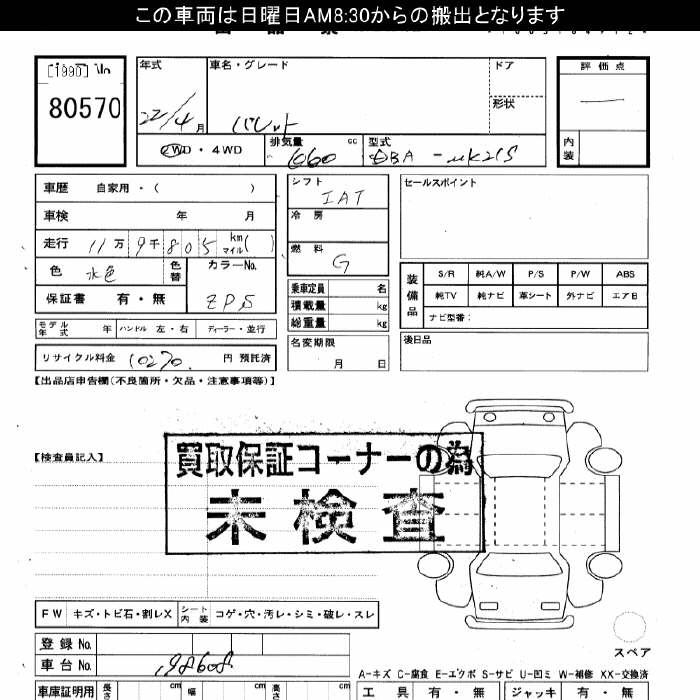 この車両は日曜日AM8:30からの搬出となります
80570
年式
22/4月
車名・グレード
パレット
ドア
形状
評価点
内装
2WD・4WD
排気量
660 cc
型式
DBA-MK21S
車歴 自家用・( )
車検 年 月
走行 11万 9千 805 km マイル( )
色 水色
色替
カラーNo.
ZPS
保証書 有・無
モデル年式 年 ハンドル 左・右 ディーラー・並行
リサイクル料金 10270 円 預託済
シフト
IAT
冷房
燃料
G
乗車定員 名
積載量 kg
総重量 kg
名変期限
月 日
セールスポイント
装備品
S/R 純A/W P/S P/W ABS
純TV 純ナビ 革シート 外ナビ エアB
ナビ型番:
後日品
【出品店申告欄(不良箇所・欠品・注意事項等)】
【検査員記入】
買取保証コーナーの為
未検査
FW キズ・トビ石・割レX シート内装 コゲ・穴・汚レ・シミ・破レ・スレ
スペア
登録No.
車台No. 198608
A-キズ C-腐食 E-エクボ S-サビ U-凹ミ W-補修 XX-交換済
車庫証明用 長さ cm 幅 cm 高さ cm
工具 有・無 ジャッキ 有・無